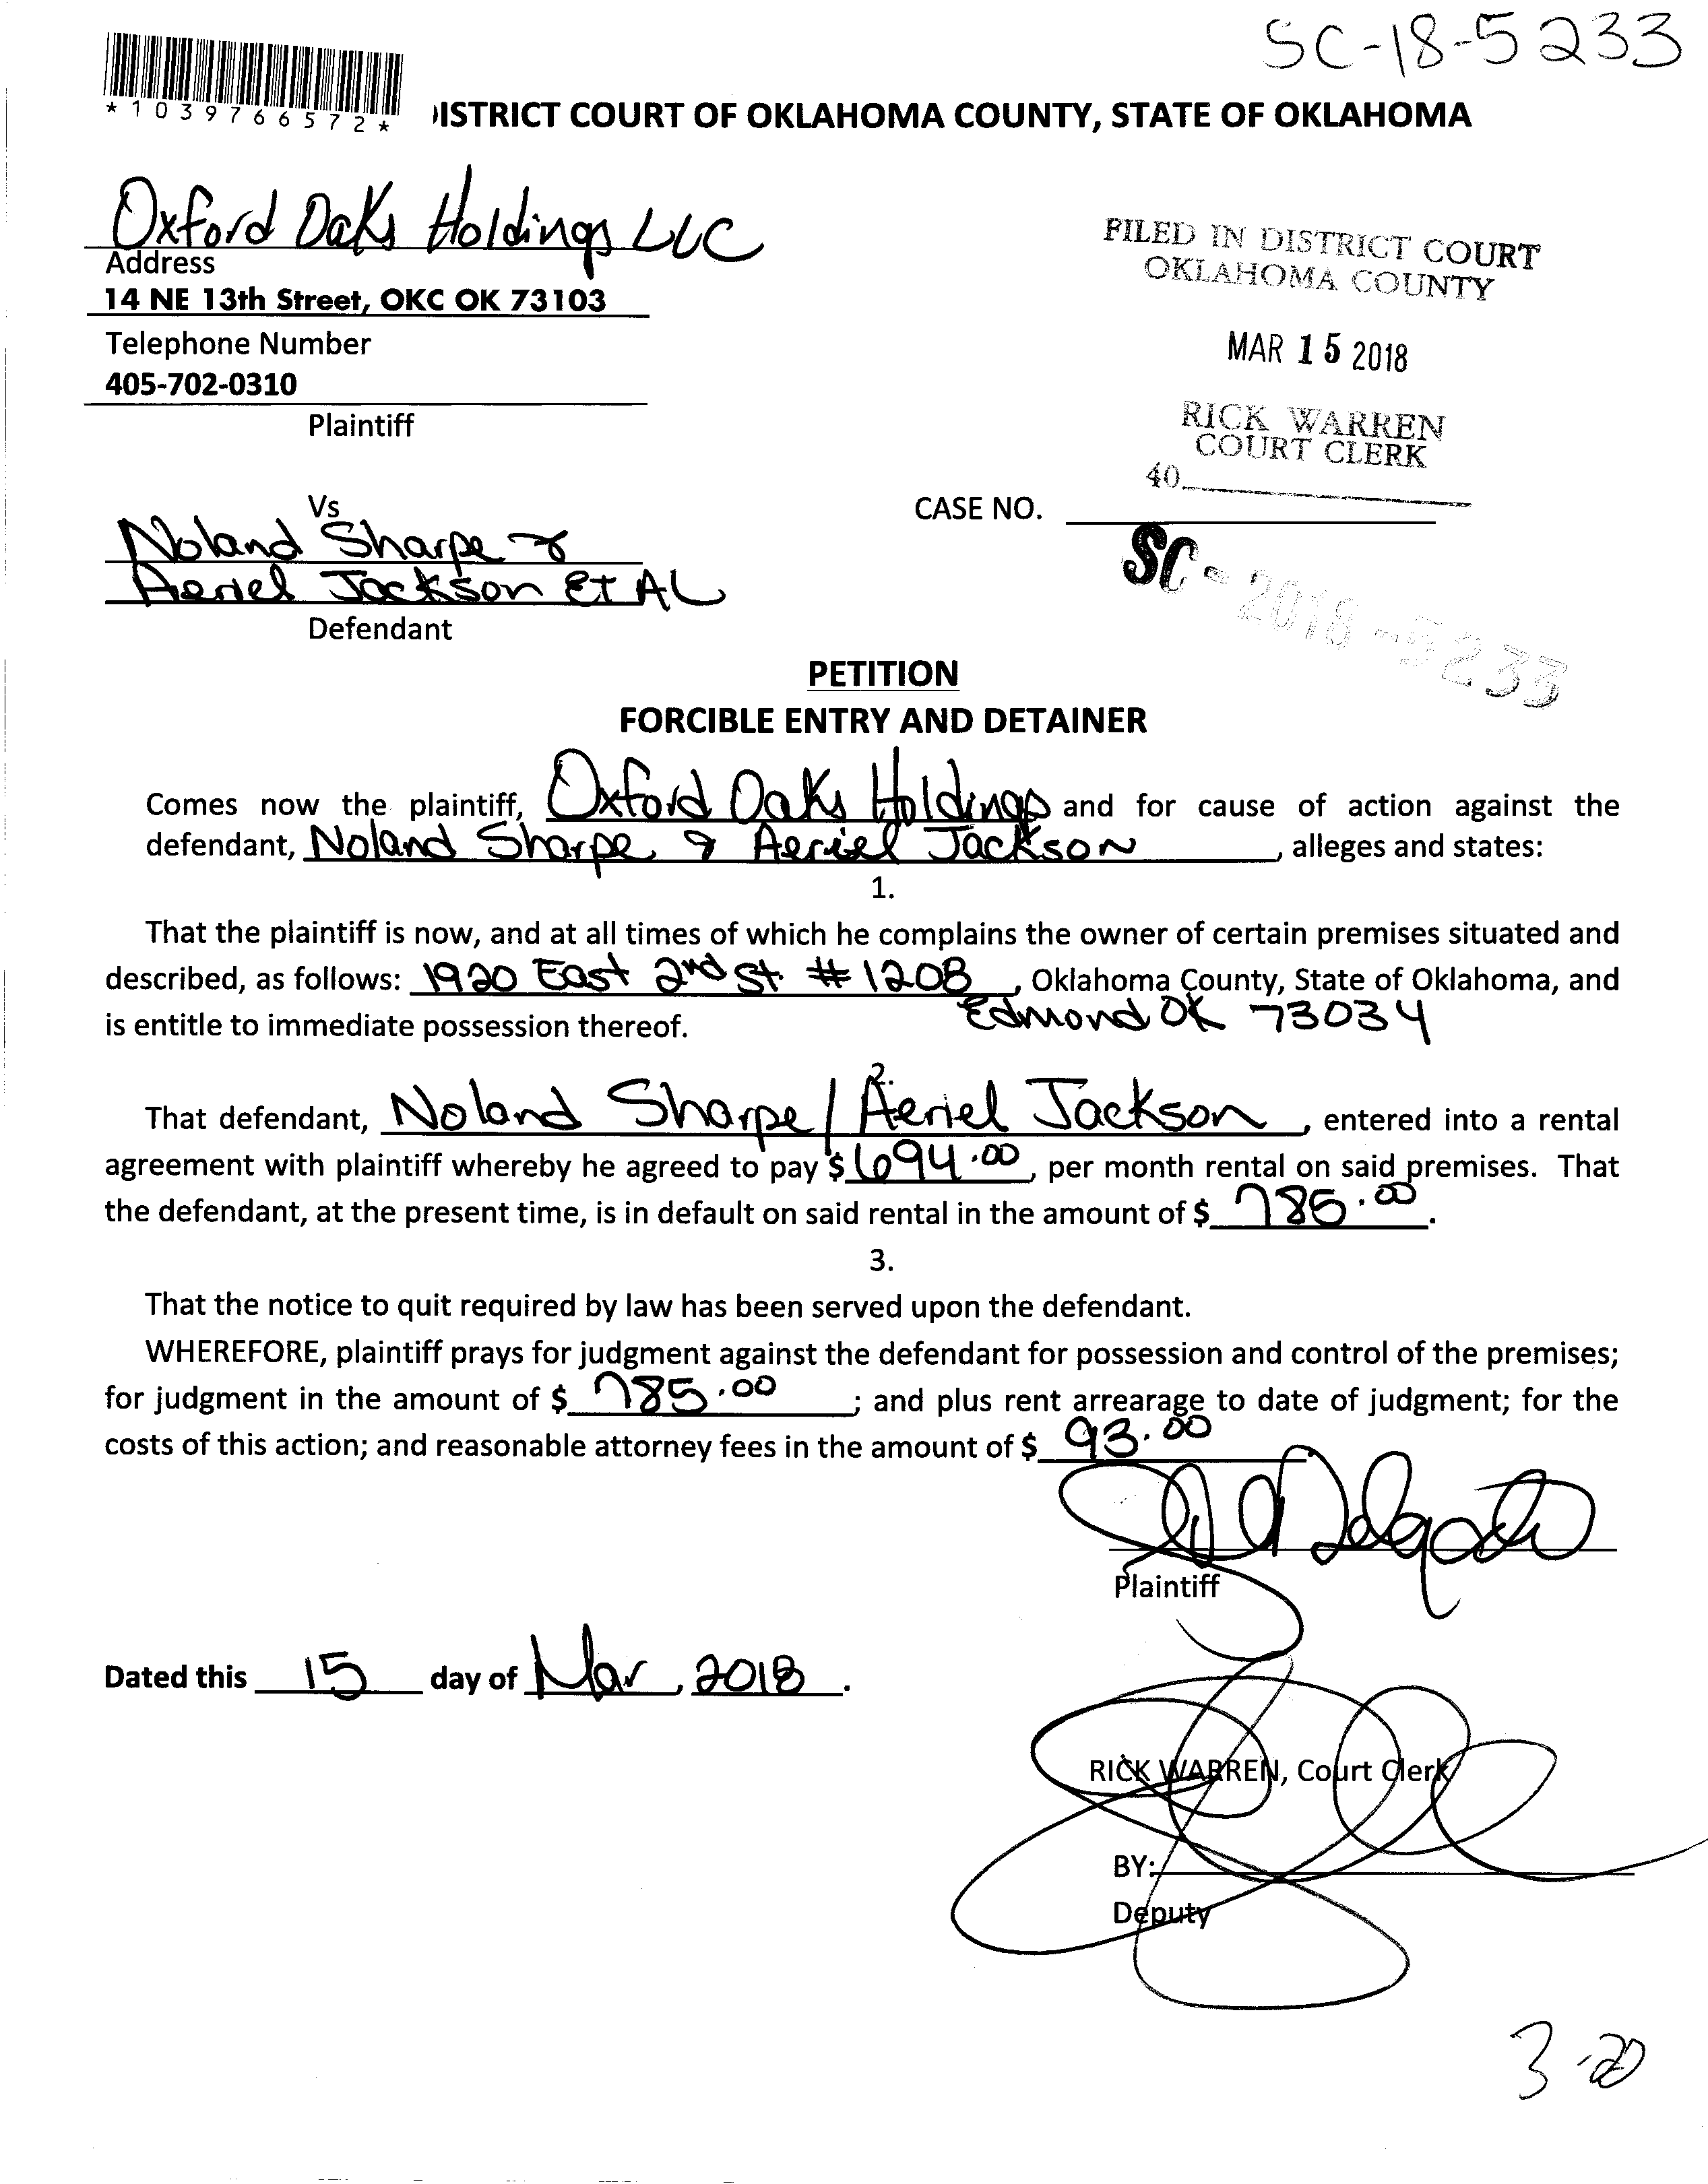 SC-18-5233
*1039766572*
ISTRICT COURT OF OKLAHOMA COUNTY, STATE OF OKLAHOMA
Oxford Oaks Holdings LLC
Address
14 NE 13th Street, OKC OK 73103
Telephone Number
405-702-0310
Plaintiff
FILED IN DISTRICT COURT
OKLAHOMA COUNTY
MAR 15 2018
RICK WARREN
COURT CLERK
40
Vs
Noland Sharpe &
Aeriel Jackson Et AL
Defendant
CASE NO.
SC-2018-5233
PETITION
FORCIBLE ENTRY AND DETAINER
Comes now the plaintiff, Oxford Oaks Holdings and for cause of action against the
defendant, Noland Sharpe & Aeriel Jackson, alleges and states:
1.
That the plaintiff is now, and at all times of which he complains the owner of certain premises situated and
described, as follows: 1920 East 2nd St. #1208, Oklahoma County, State of Oklahoma, and
is entitle to immediate possession thereof. Edmond OK 73034
2.
That defendant, Noland Sharpe / Aeriel Jackson, entered into a rental
agreement with plaintiff whereby he agreed to pay $694.00, per month rental on said premises. That
the defendant, at the present time, is in default on said rental in the amount of $ 785.00.
3.
That the notice to quit required by law has been served upon the defendant.
WHEREFORE, plaintiff prays for judgment against the defendant for possession and control of the premises;
for judgment in the amount of $ 785.00; and plus rent arrearage to date of judgment; for the
costs of this action; and reasonable attorney fees in the amount of $ 93.00
Plaintiff
Dated this 15 day of Mar, 2018.
RICK WARREN, Court Clerk
BY:
Deputy
3-20